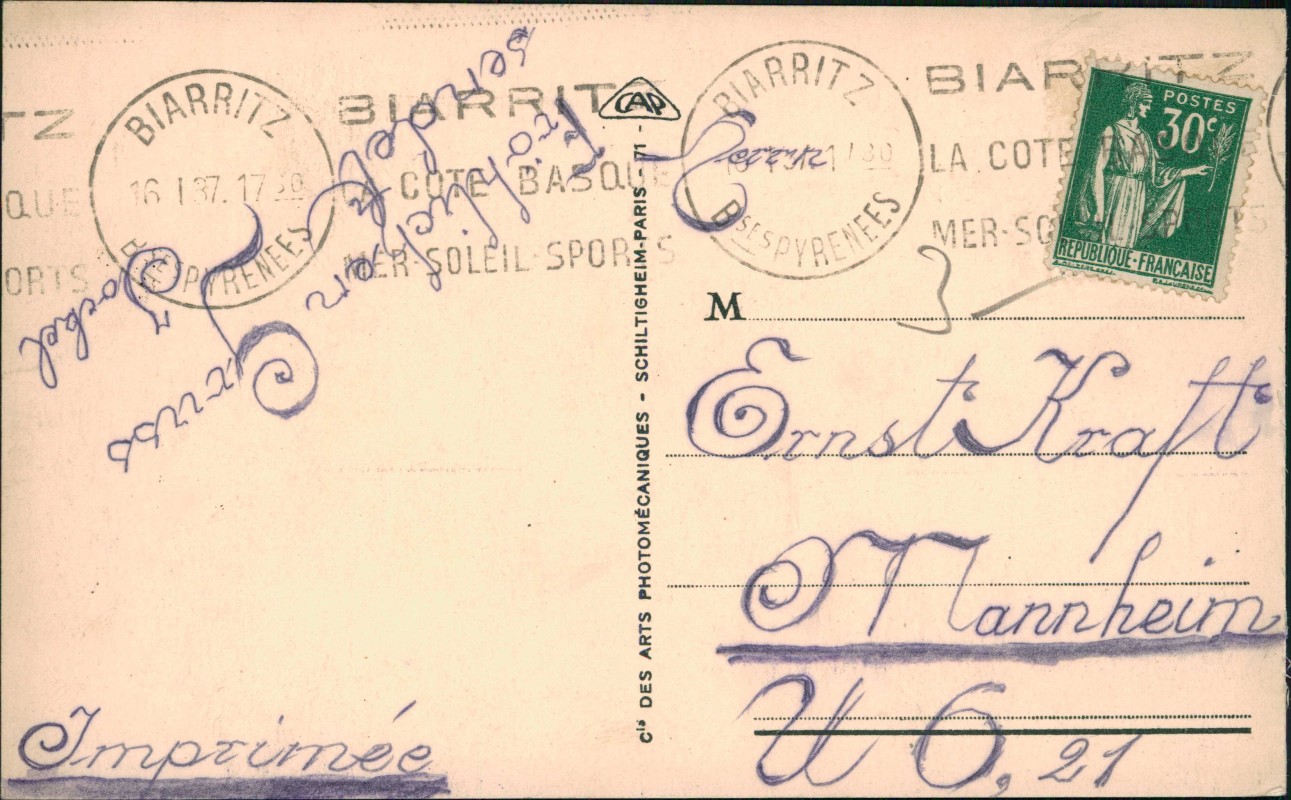 BIARRITZ
16 I 37. 17 30
Bses PYRENEES
BIARRITZ
LA COTE BASQUE
MER-SOLEIL-SPORTS
TZ
QUE
ORTS
CAP
BIARRITZ
Bses PYRENEES
BIARRITZ
LA COTE
MER-SO
POSTES
30c
REPUBLIQUE·FRANÇAISE
fröhlichen
Gruss
sendet
Imprimée
Cie DES ARTS PHOTOMÉCANIQUES - SCHILTIGHEIM-PARIS - 71 -
M
Ernst Kraft
Mannheim
U 6, 21